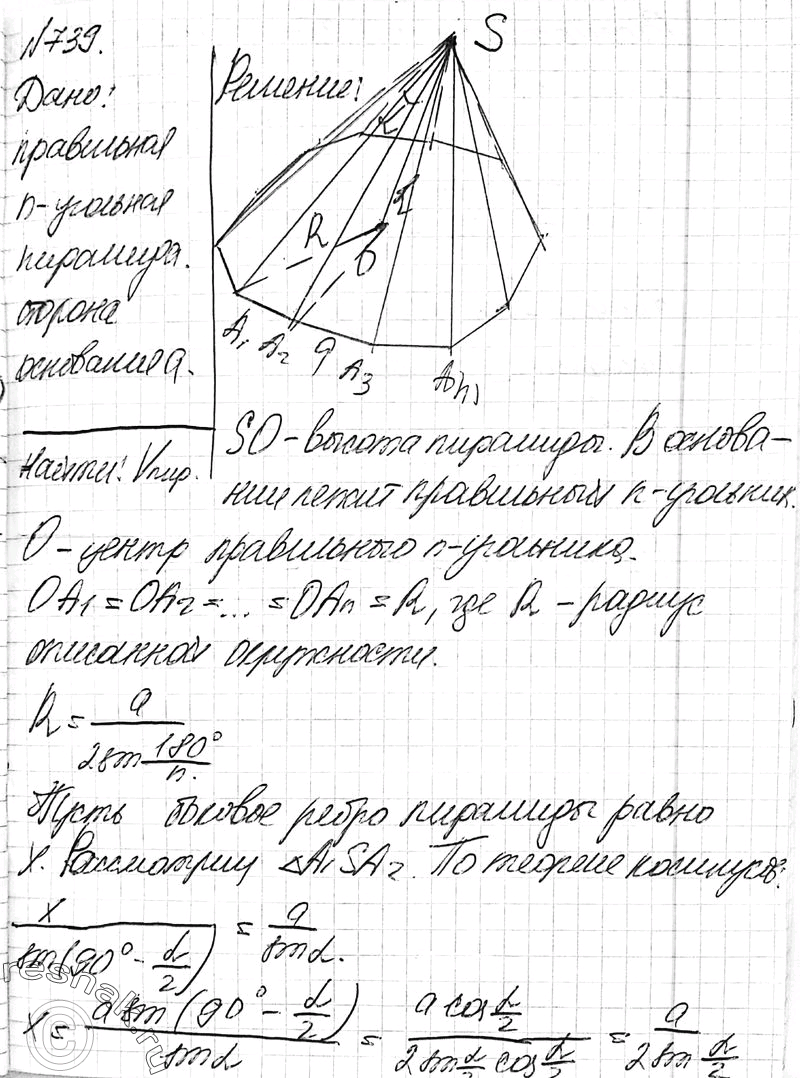 №739.
Дано:
правильная
n-угольная
пирамида.
сторона
основания a.
Найти: Vпир.
Решение:
S
α
R
O
A₁ A₂ a A₃
SO – высота пирамиды. В основа-
нии лежит правильный n-угольник.
O – центр правильного n-угольника.
OA₁ = OA₂ = ... = OAn = R, где R – радиус
описанной окружности.
R = a / (2 sin 180°/n).
Пусть боковое ребро пирамиды равно
x. Рассмотрим △A₁SA₂. По теореме косинусов:
x / sin(90° – α/2) = a / sin α.
x = a sin(90° – α/2) / sin α = a cos α/2 / (2 sin α/2 cos α/2) = a / (2 sin α/2)
reshak.ru